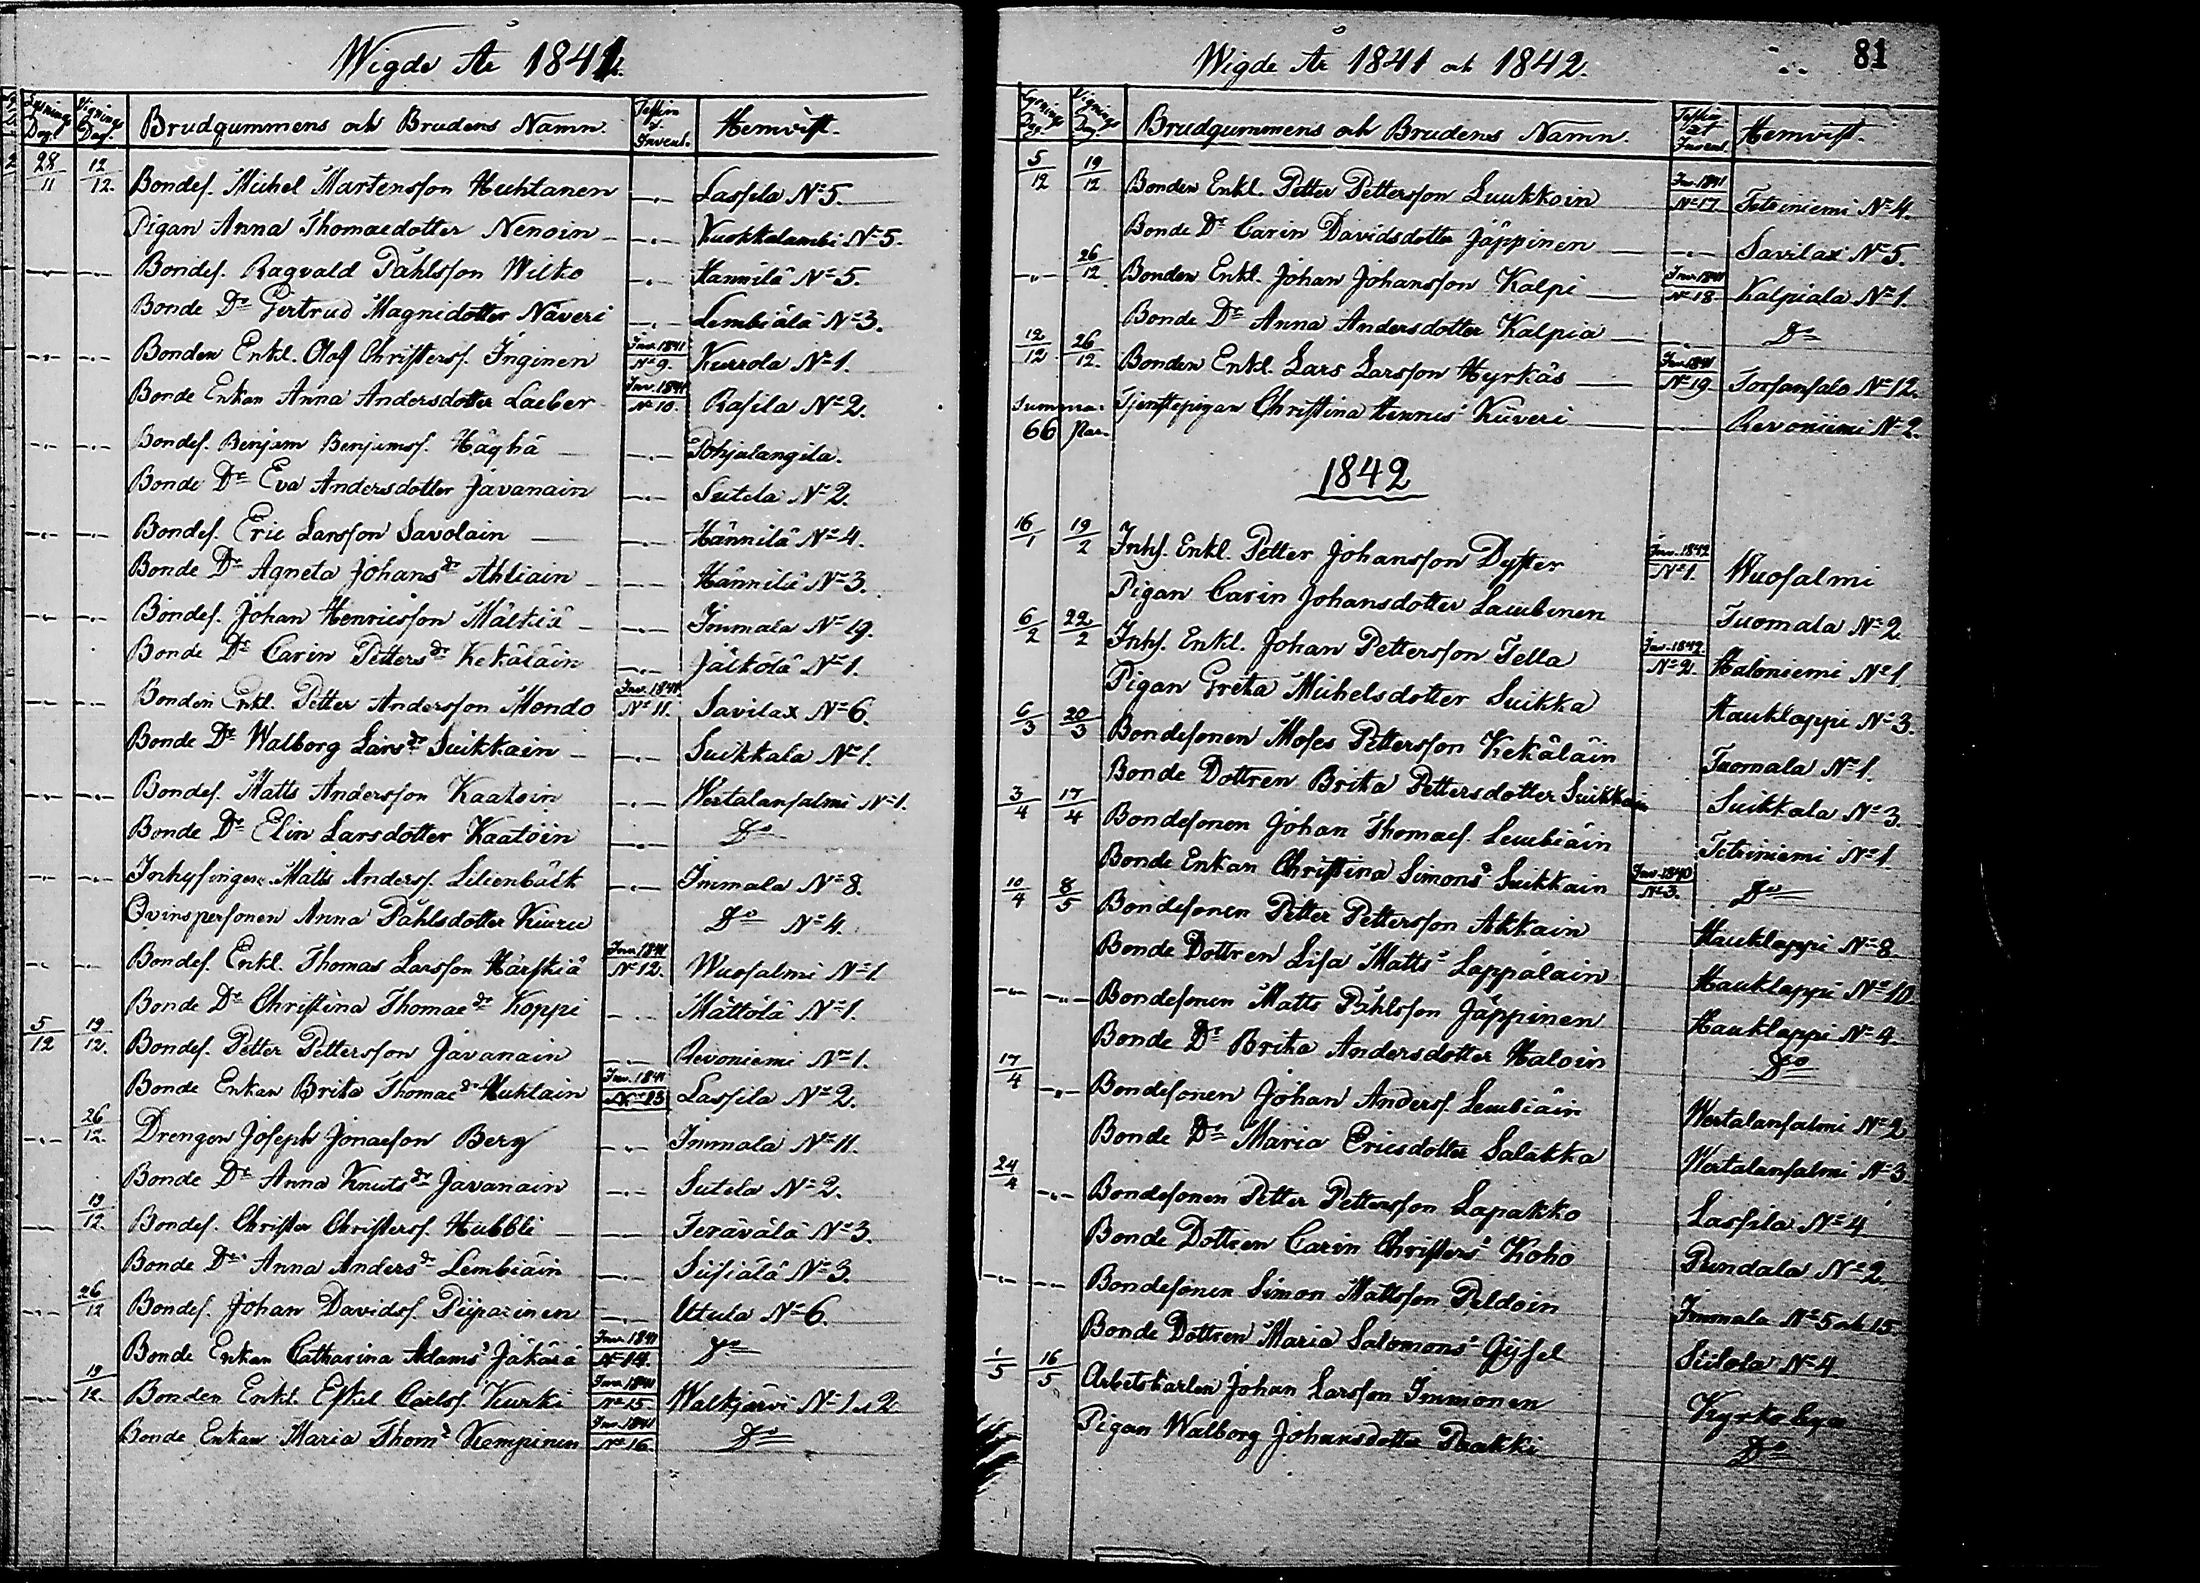 Wigde År 1841.
Lysnings Dag. Vignings Dag. Brudgummens och Brudens Namn. Testim. et Invent. Hemvist.
28/11 12/12. Bondes. Michel Martensson Huhtanen —"— Lassila N:o 5.
Pigan Anna Thomaedotter Nenoin —"— Kuokkalambi N:o 5.
—"— —"— Bondes. Ragvald Påhlsson Wilko —"— Hannila N:o 5.
Bonde Dr Gertrud Magnidotter Näveri —"— Lembiälä N:o 3.
—"— —"— Bonden Enkl. Olof Christers. Inginen Inv. 1841 N:o 9. Kurrola N:o 1.
Bonde Enkan Anna Andersdotter Laeber Inv. 1841 N:o 10. Rasila N:o 2.
—"— —"— Bondes. Benjam Benjamss. Häghä —"— Pohjalangila.
Bonde Dr Eva Andersdotter Javanain —"— Sutela N:o 2.
—"— —"— Bondes. Eric Larsson Savolain —"— Hännilä N:o 4.
Bonde Dr Agneta Johans dr Ahliain —"— Hännilä N:o 3.
—"— —"— Bondes. Johan Henricsson Mälkiä —"— Immala N:o 19.
Bonde Dr Carin Petters dr Kekäläin —"— Jälkölä N:o 1.
—"— —"— Bonden Enkl. Petter Andersson Mondo Inv. 1841 N:o 11. Savilax N:o 6.
Bonde Dr Walborg Lars dr Suikkain —"— Suikkala N:o 1.
—"— —"— Bondes. Matts Andersson Kaatoin —"— Wertalansalmi N:o 1.
Bonde Dr Elin Larsdotter Kaatoin —"— Do
—"— —"— Inhysingen Matts Anderss. Lilienbäck —"— Immala N:o 8.
Qvinspersonen Anna Påhlsdotter Kiuru Do N:o 4.
—"— —"— Bondes. Enkl. Thomas Larsson Härskiä Inv. 1841 N:o 12. Wuosalmi N:o 1
Bonde Dr Christina Thomae dr Koppi —"— Mättölä N:o 1.
5/12 19/12. Bondes. Petter Pettersson Javanain —"— Revoniemi N:o 1.
Bonde Enkan Brita Thomae dr Huhtain Inv. 1841 N:o 13 Lassila N:o 2.
—"— 26/12. Drengen Joseph Jonaeson Berg —"— Immala N:o 11.
Bonde Dr Anna Knuts dr Javanain —"— Sutela N:o 2.
—"— 19/12. Bondes. Christer Christerss. Hubbli —"— Terävälä N:o 3.
Bonde Dr Anna Anders dr Lembiäin —"— Siisiälä N:o 3.
—"— 26/12 Bondes. Johan Davidss. Piiparinen —"— Utula N:o 6.
Bonde Enkan Catharina Adams dr Jäkärä Inv. 1841 N:o 14. Do
—"— 19/12. Bonden Enkl. Eskel Carlss. Kurki Inv. 1841 N:o 15 Walkjärvi N:o 1 o 2
Bonde Enkan Maria Thom dr Kempinen Inv. 1841 N:o 16. Do
81
Wigde År 1841 och 1842.
Lysnings Dag. Vignings Dag. Brudgummens och Brudens Namn. Testim. et Invent. Hemvist.
5/12 19/12 Bonden Enkl. Petter Pettersson Luukkoin Inv. 1841 N:o 17 Teteiniemi N:o 4.
Bonde Dr Carin Davidsdotter Jäppinen —"— Savilax N:o 5.
—"— 26/12. Bonden Enkl. Johan Johansson Kalpi Inv. 1841 N:o 18 Kalpiala N:o 1.
Bonde Dr Anna Andersdotter Kalpia —"— Do
12/12 26/12. Bonden Enkl. Lars Larsson Hyrkäs Inv. 1841 N:o 19. Torsansalo N:o 12.
Summa: Tjenstepigan Christina Hinnus dr Kuveri —"— Revoniemi N:o 2.
66 Par.
1842
16/1 19/2 Inhs. Enkl. Petter Johansson Dyster Inv. 1842 N:o 1. Wuosalmi
Pigan Carin Johansdotter Laubinen Tuomala N:o 2
6/2 22/2 Inhs. Enkl. Johan Pettersson Tella Inv. 1842 N:o 2. Haloniemi N:o 1.
Pigan Greta Michelsdotter Suikka Hauklappi N:o 3.
6/3 20/3 Bondesonen Moses Pettersson Kekäläin Tuomala N:o 1.
Bonde Dottren Brita Pettersdotter Suikkain Suikkala N:o 3.
3/4 17/4 Bondesonen Johan Thomaes. Lembiäin Teteiniemi N:o 1.
Bonde Enkan Christina Simons dr Suikkain Inv. 1840 N:o 3. Do
10/4 8/5 Bondesonen Petter Pettersson Akkain Hauklappi N:o 8.
Bonde Dottren Lisa Matts dr Lappälain Hauklappi N:o 10
—"— —"— Bondesonen Matts Påhlsson Jäppinen Hauklappi N:o 4.
Bonde Dr Brita Andersdotter Haloin Do
17/4 —"— Bondesonen Johan Anderss. Lembiäin Wertalansalmi N:o 2
Bonde Dr Maria Ericsdotter Salakka Wertalansalmi N:o 3.
24/4 —"— Bondesonen Petter Pettersson Lapakko Lassila N:o 4
Bonde Dottren Carin Christers dr Koho Pundala N:o 2.
—"— —"— Bondesonen Simon Mattsson Peldoin Immala N:o 5 och 15
Bonde Dottren Maria Salomons dr Gijsel Siilola N:o 4.
1/5 16/5 Arbetskarlen Johan Larsson Immonen Kyrko byn
Pigan Walborg Johansdotter Paakki Do